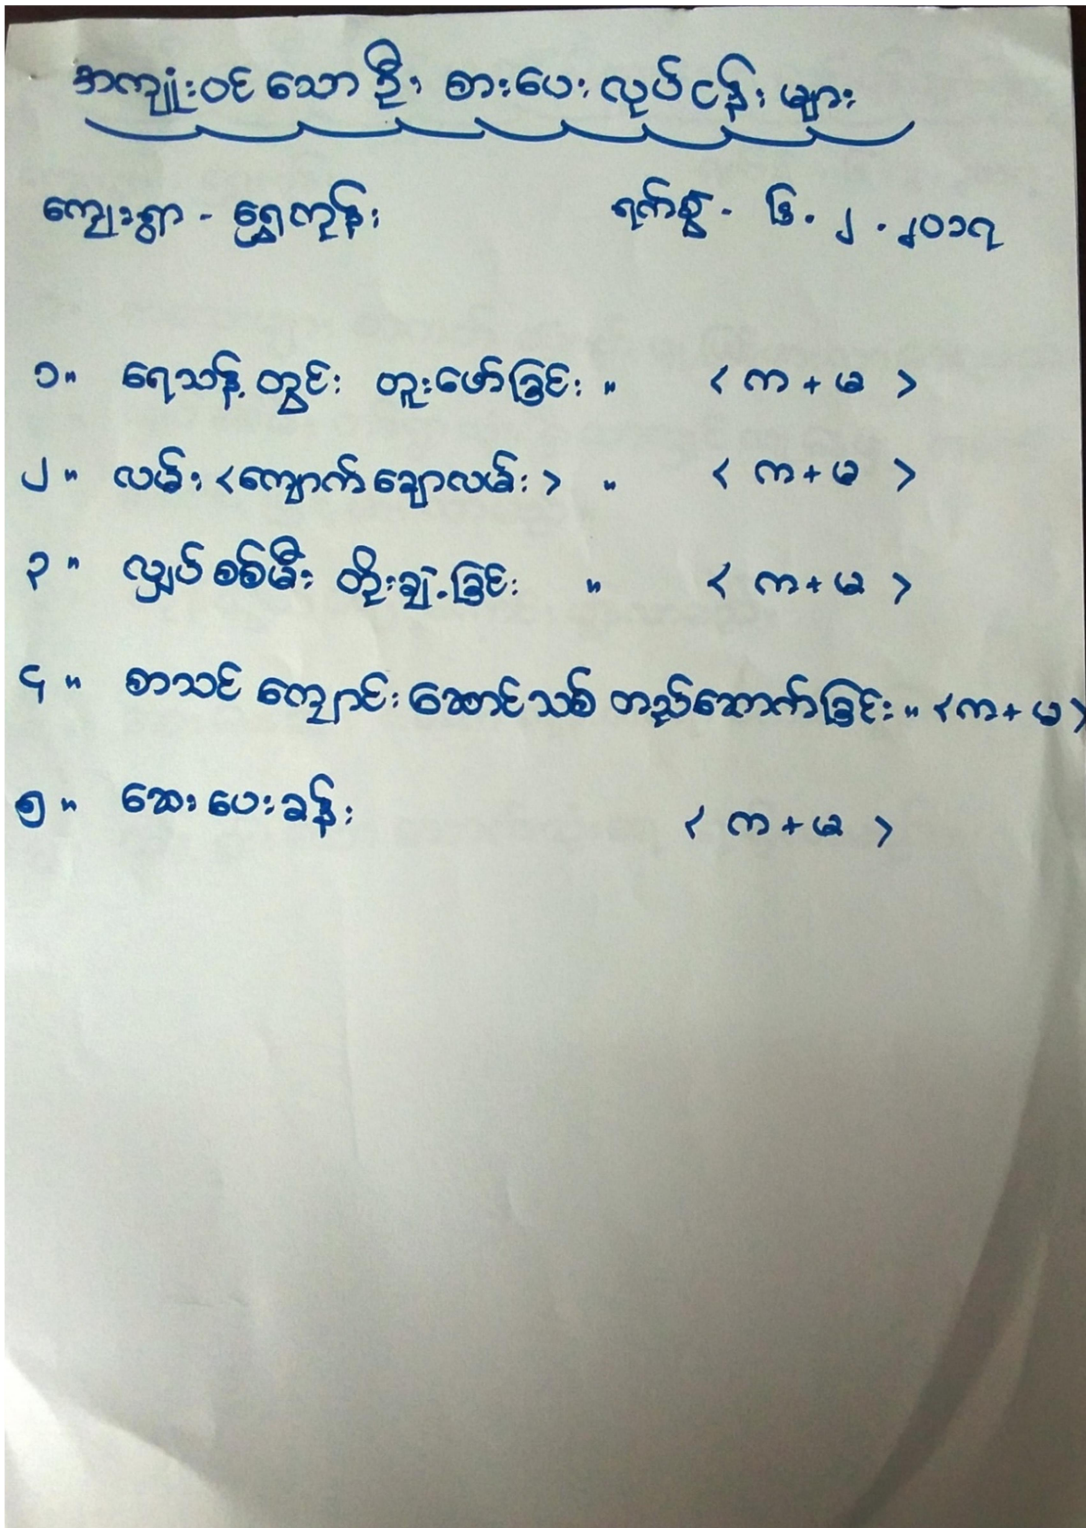 အကျုံးဝင်သောဦးစားပေးလုပ်ငန်းများ
ကျေးရွာ - ရွှေကုန်း ရက်စွဲ - ၆.၂.၂၀၁၇
၁။ ရေသန့်တွင်း တူးဖော်ခြင်း။ < က + မ >
၂။ လမ်း <ကျောက်ချောလမ်း> ။ < က + မ >
၃။ လျှပ်စစ်မီး တိုးချဲ့ခြင်း ။ < က + မ >
၄။ စာသင်ကျောင်းဆောင်သစ် တည်ဆောက်ခြင်း။ <က + မ>
၅။ ဆေးပေးခန်း < က + မ >